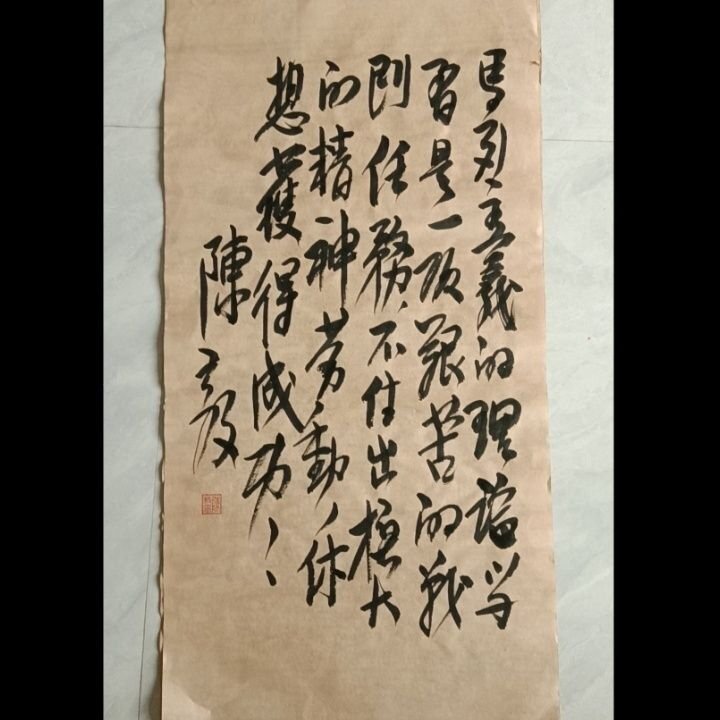 馬列主義的理論学
習是一项艱苦的战
鬥任務,不付出極大
的精神劳動,休
想獲得成功!
陳毅